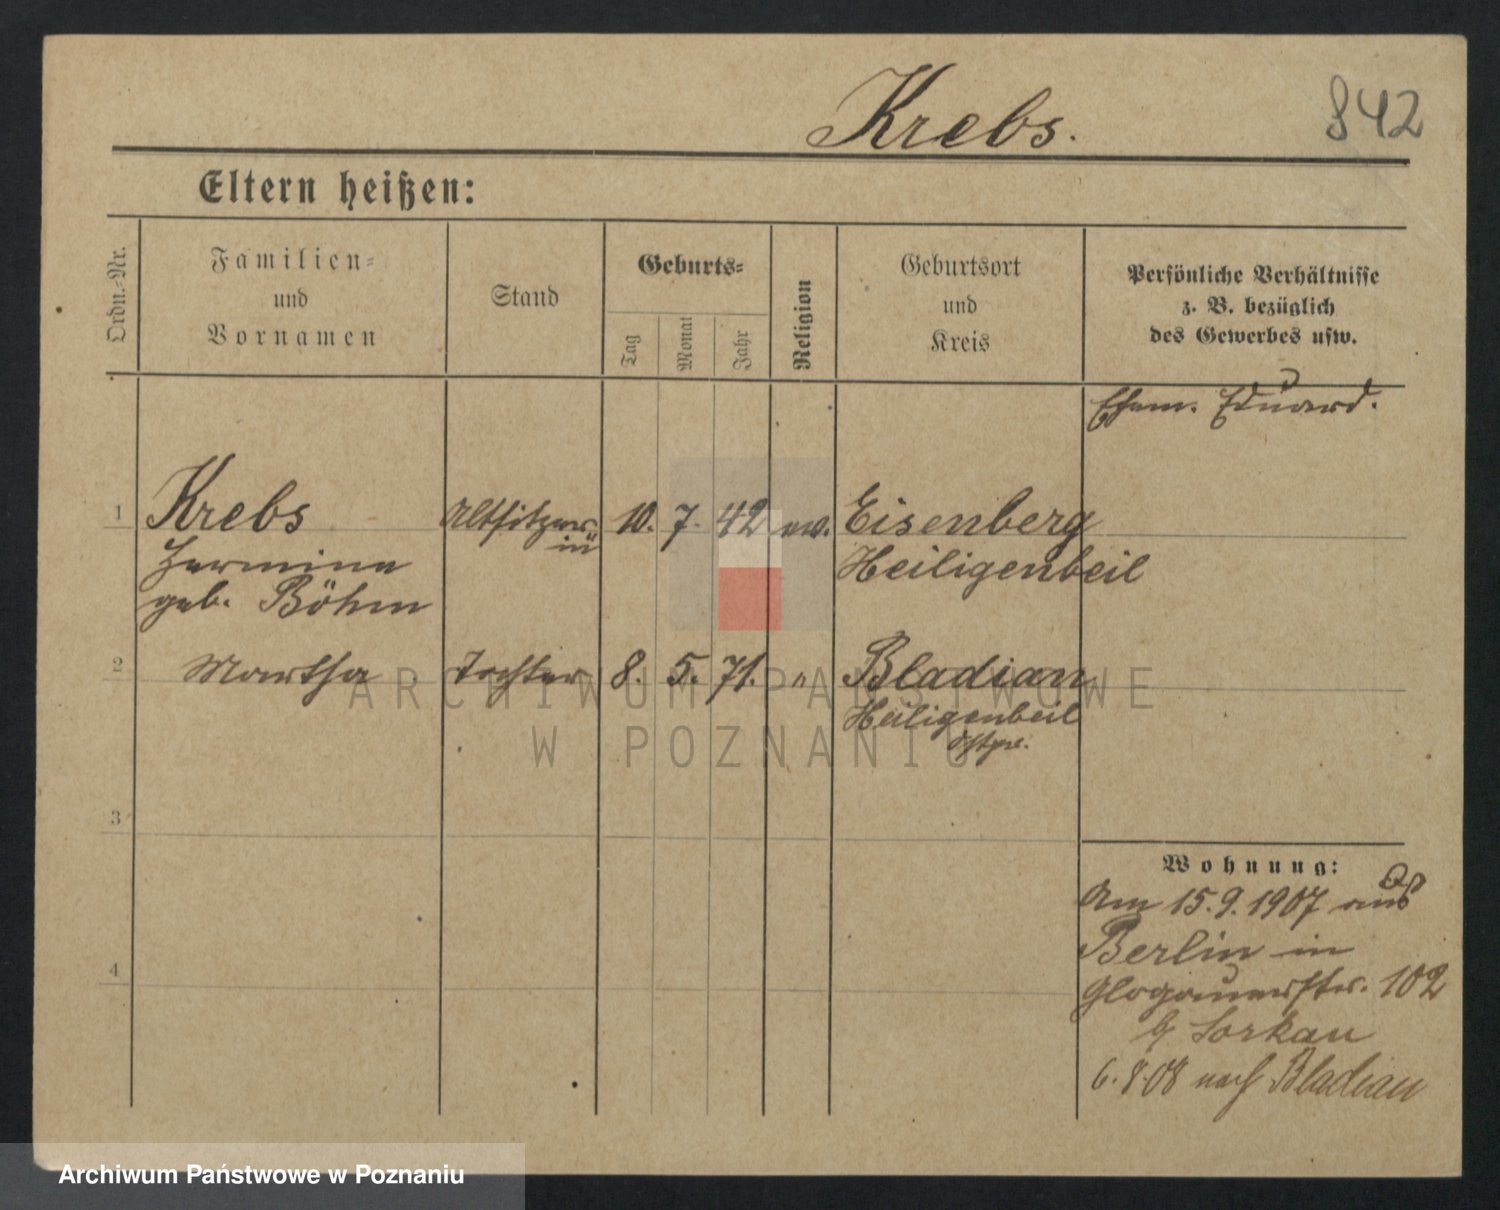 Krebs.
842
Eltern heißen:
Ordn.-Nr.
Familien-
und
Vornamen
Stand
Geburts-
Tag
Monat
Jahr
Religion
Geburtsort
und
Kreis
Persönliche Verhältnisse
z. B. bezüglich
des Gewerbes usw.
Ehem. Eduard.
1
Krebs
Altsitzer
in
10. 7. 42
ev.
Eisenberg
Hermine
Heiligenbeil
geb. Böhm
2
Martha
Tochter
8. 5. 71.
"
Bladian
Heiligenbeil
Ostpr.
ARCHIWUM PAŃSTWOWE
W POZNANIU
3
Wohnung:
Am 15.9.1907 aus
Berlin in
Glogauerstr. 102
b/ Sorkau
4
6.8.08 nach Bladiau
Archiwum Państwowe w Poznaniu